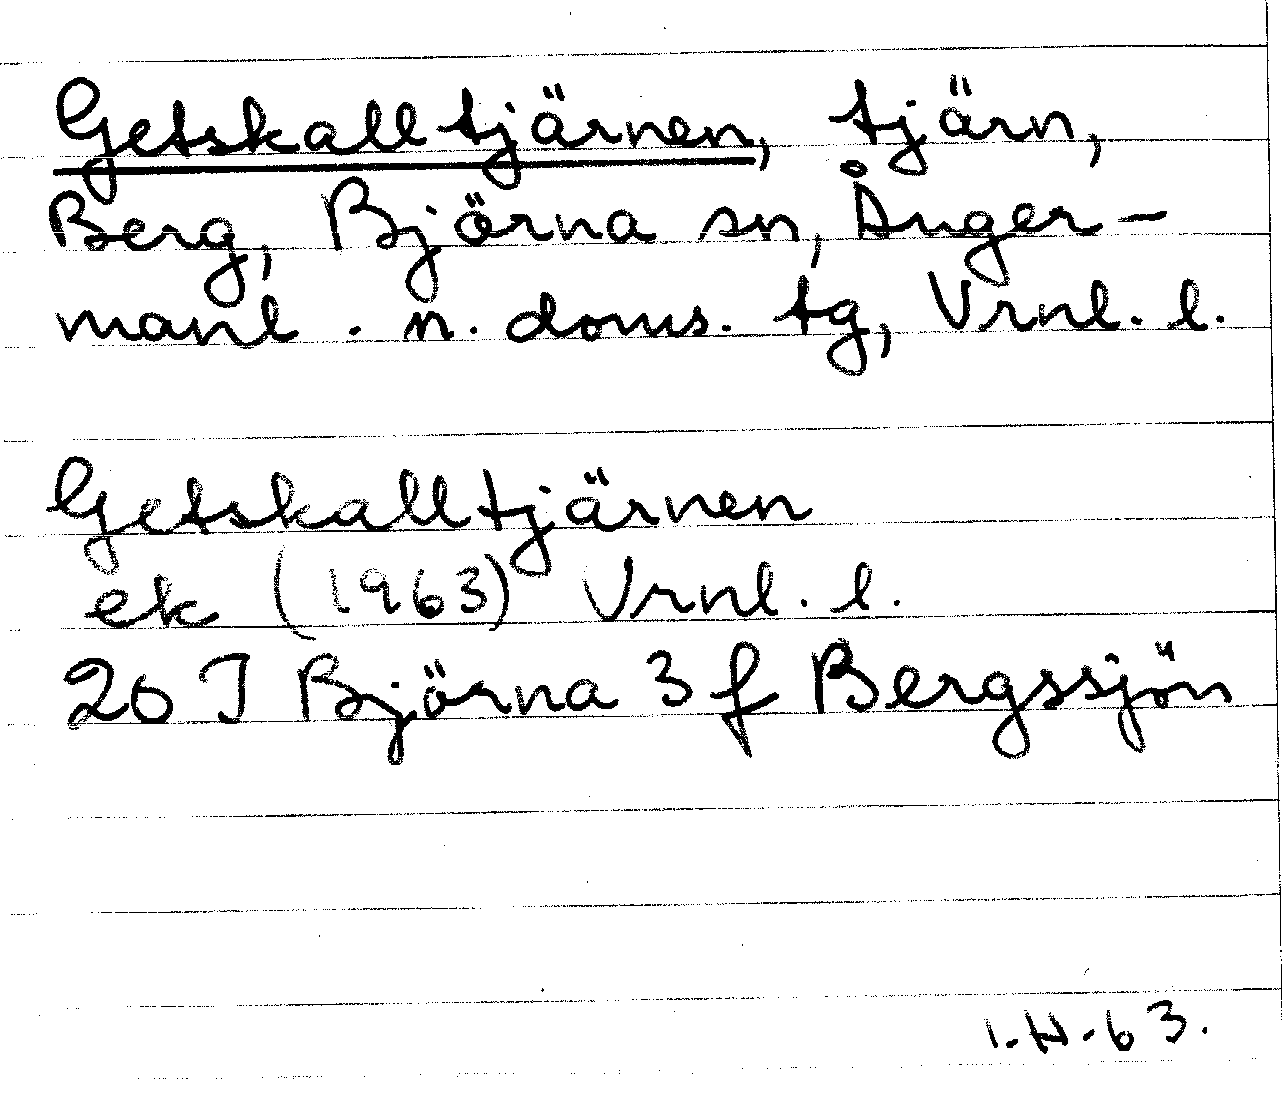 Getskalltjärnen, tjärn,
Berg, Björna sn, Ånger-
manl. n. doms. tg, Vrnl. l.
Getskalltjärnen
ek (1963) Vrnl. l.
20 I Björna 3 f Bergssjön
I.H.63.